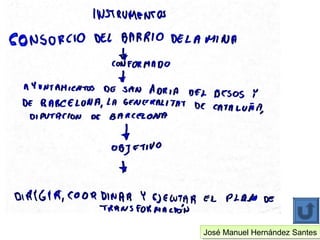 INSTRUMENTOS
CONSORCIO DEL BARRIO DE LA MINA
CONFORMADO
AYUNTAMIENTOS DE SAN ADRIA DEL BESOS Y
DE BARCELONA, LA GENERALITAT DE CATALUÑA,
DIPUTACION DE BARCELONA
OBJETIVO
DIRIGIR, COORDINAR Y EJECUTAR EL PLAN DE
TRANSFORMACIÓN
José Manuel Hernández Santes